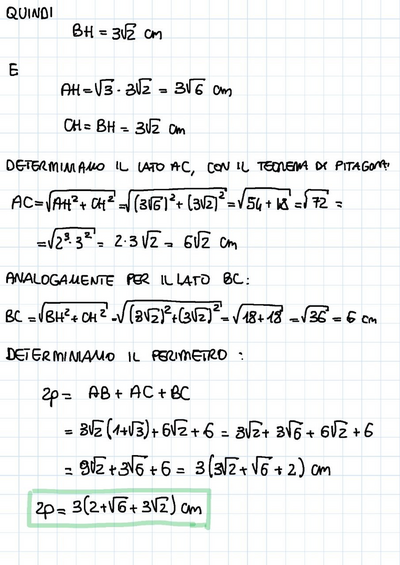 QUINDI
BH = 3√2 cm
E
AH = √3 · 3√2 = 3√6 cm
CH = BH = 3√2 cm
DETERMINIAMO IL LATO AC, CON IL TEOREMA DI PITAGORA:
AC = √(AH² + CH²) = √((3√6)² + (3√2)²) = √(54 + 18) = √72 =
= √(2³ · 3²) = 2 · 3√2 = 6√2 cm
ANALOGAMENTE PER IL LATO BC:
BC = √(BH² + CH²) = √((3√2)² + (3√2)²) = √(18 + 18) = √36 = 6 cm
DETERMINIAMO IL PERIMETRO:
2p = AB + AC + BC
= 3√2(1+√3) + 6√2 + 6 = 3√2 + 3√6 + 6√2 + 6
= 9√2 + 3√6 + 6 = 3(3√2 + √6 + 2) cm
2p = 3(2 + √6 + 3√2) cm